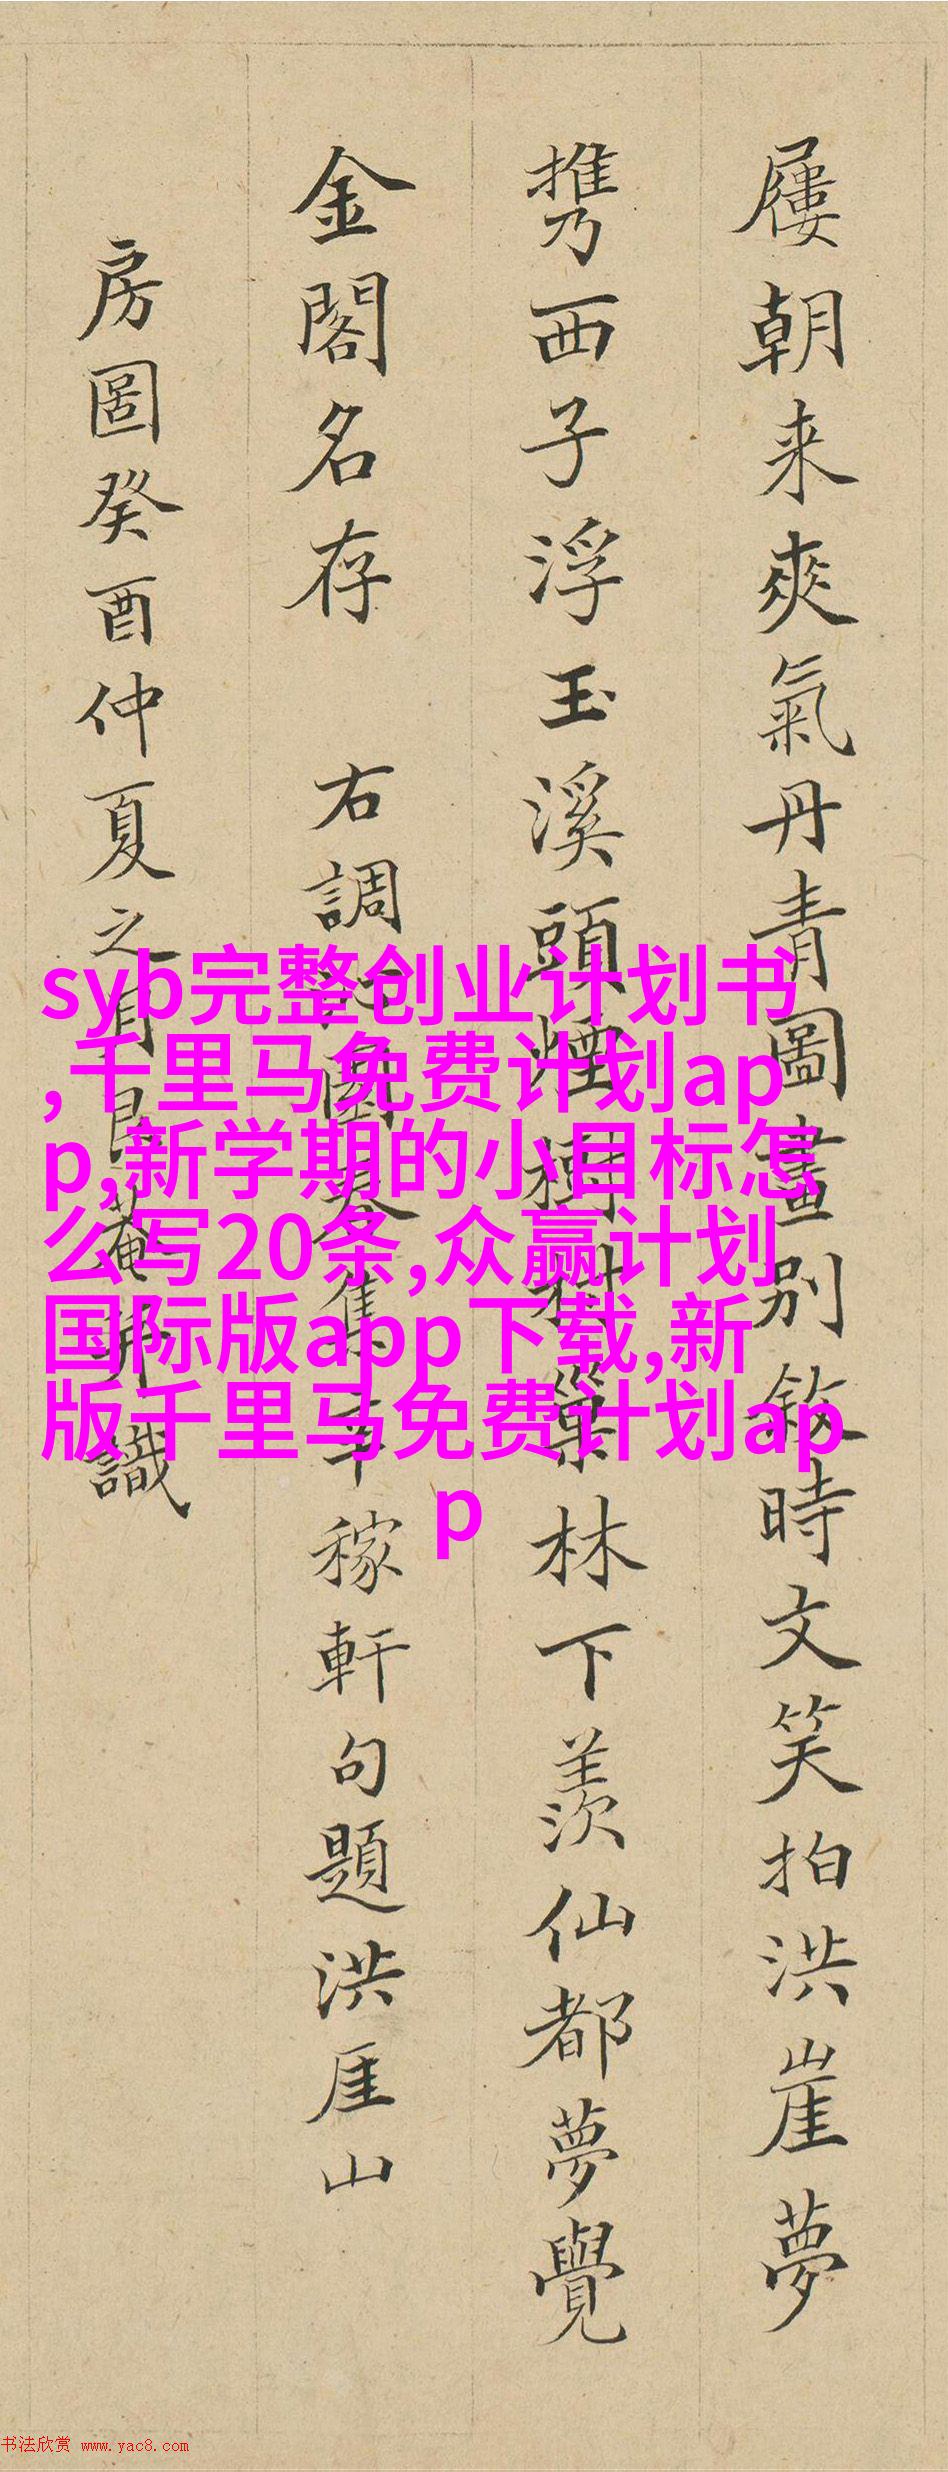 屢朝来爽氣丹青圖畫別敘時文笑拍洪崖夢
攜西子浮玉溪頭煙樹樹巢林下羨仙都夢覺
金閣名存 右調園春集辛稼軒句題洪厓山
房圖癸酉仲夏之月艮菴識
syb完整创业计划书
,千里马免费计划ap
p,新学期的小目标怎
么写20条,众赢计划
国际版app下载,新
版千里马免费计划ap
p
书法欣赏 www.yac8.com